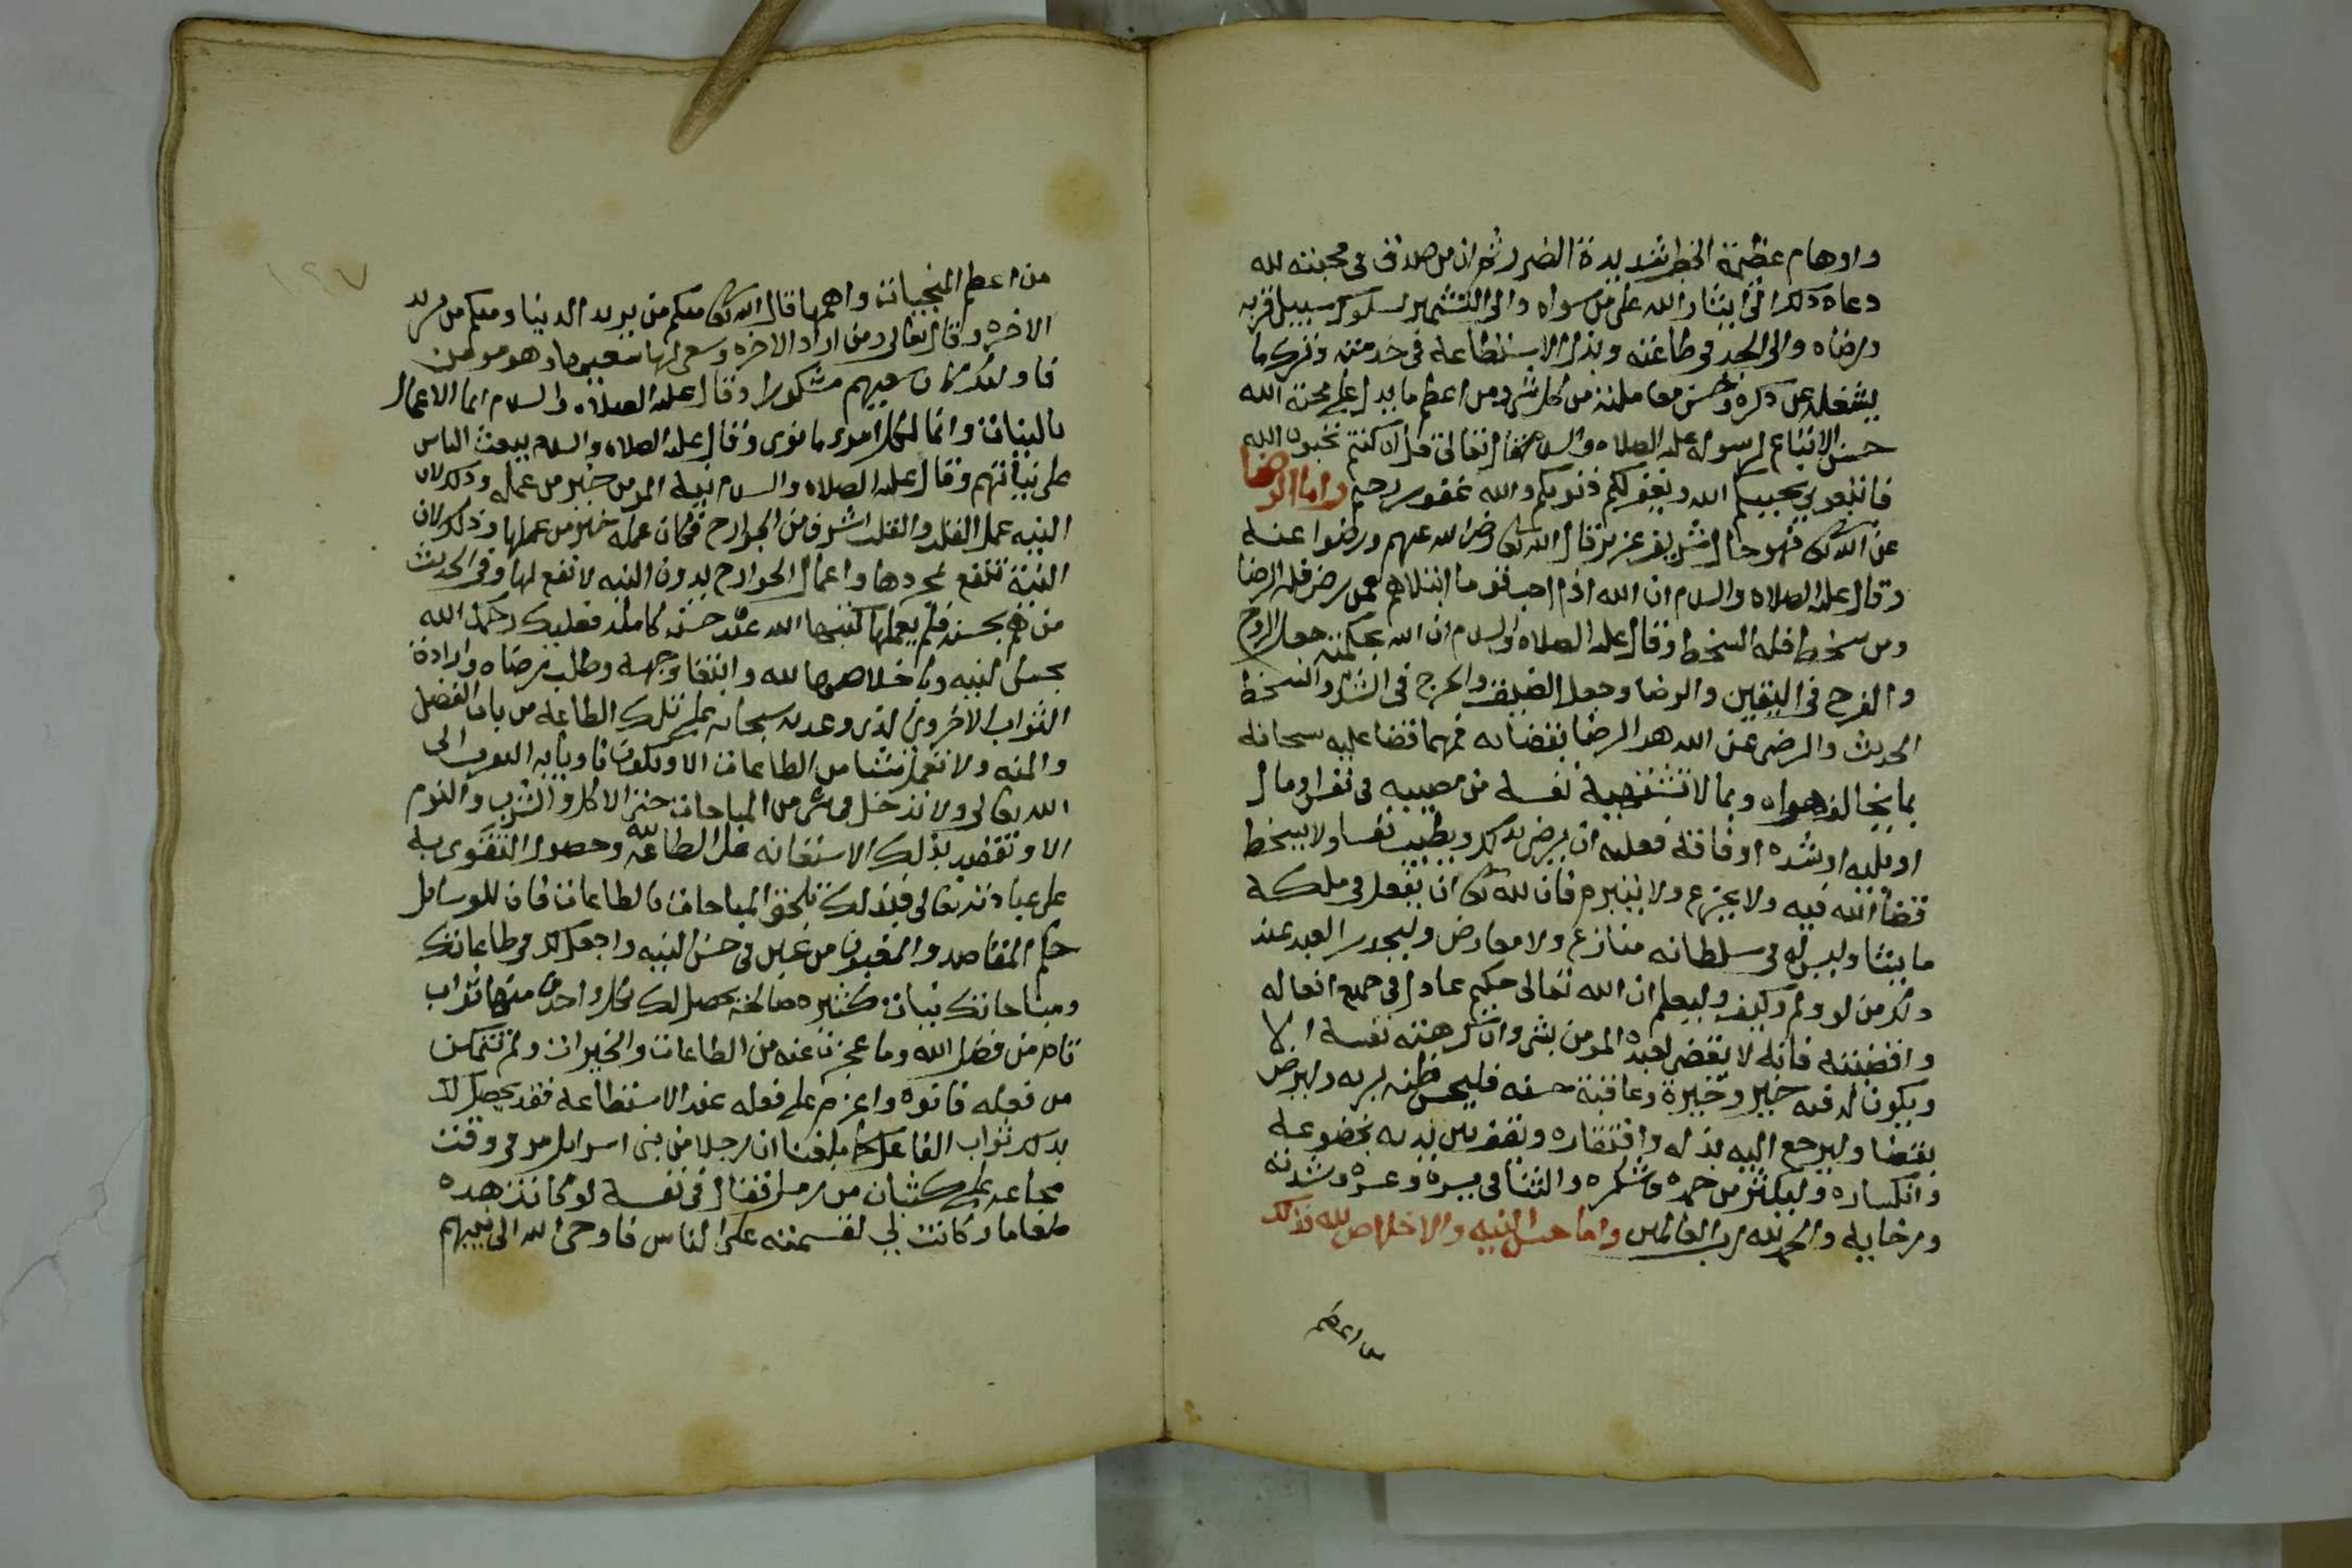 واوهام عظيمة الخطر شديدة الضرر ثم ان من صدق في محبته لله
دعاه ذلك الى ايثار الله على من سواه والى التشمير لسلوك سبيل قربه
ورضاه والى الجد في طاعته وبذل الاستطاعة في خدمته وترك ما
يشغله عن ذكره وحسن معاملته من كل شي ومن اعظم ما يدل على محبة الله
حسن الاتباع لرسوله عليه الصلاه والسلام قال تعالى قل ان كنتم تحبون الله
فاتبعوني يحببكم الله ويغفر لكم ذنوبكم والله غفور رحيم واما الرضا
عن الله تعالى فهو حال شريف عزيز قال الله تعالى رضي الله عنهم ورضوا عنه
وقال عليه الصلاه والسلام ان الله اذا احب قوما ابتلاهم فمن رضي فله الرضا
ومن سخط فله السخط وقال عليه الصلاه والسلام ان الله بحكمته جعل الروح
والفرح في اليقين والرضا وجعل الضيق والحرج في الشك والسخط
الحديث والرضى عن الله هو الرضا بقضائه فمهما قضا عليه سبحانه
بما يخالف هواه وبما لا تشتهيه نفسه من مصيبه في نفس ومال
او بليه او شده او فاقة فعليه ان يرضى بذلك ويطيب نفسا ولا يسخط
قضاء الله فيه ولا يجزع ولا يتبرم فان لله تعالى ان يفعل في ملكه
ما يشا وليس له في سلطانه منازع ولا معارض وليحذر العبد عند
ذلك من لو ولم وكيف وليعلم ان الله تعالى حكيم عادل في جميع افعاله
واقضيته فانه لا يقضي لعبده المومن بشي وان كرهته نفسه الا
ويكون له فيه خير وخيرة وعاقبة حسنه فليحسن ظنه بربه وليرض
بقضا وليرجع اليه بذله وافتقاره ويقف بين يديه بخضوعه
وانكساره وليكثر من حمده وشكره والثنا في يسره وعسره وشدته
ورخايه والحمد لله رب العالمين واما حسن النيه والاخلاص لله فذلك
من اعظم
١٢٧
من اعظم المنجيات واهمها قال الله تعالى منكم من يريد الدنيا ومنكم من يريد
الاخره وقال تعالى ومن اراد الاخره وسعى لها سعيها وهو مومن
فاولئك كان سعيهم مشكورا وقال عليه الصلاه والسلام انما الاعمال
بالنيات وانما لكل امرء ما نوى وقال عليه الصلاه والسلام يبعث الناس
على نياتهم وقال عليه الصلاه والسلام نية المومن خير من عمله وذلك لان
النيه عمل القلب والقلب اشرف من الجوارح فكان عمله خير من عملها وذلك لان
النية تنفع بمجردها واعمال الجوارح بدون النيه لا نفع لها وفي الحديث
من هم بحسنه فلم يعملها كتبها الله عنده حسنه كامله فعليك رحمك الله
بحسن النيه وباخلاصها لله وابتغا وجهه وطلب مرضاه وارادة
الثواب الاخروي الذي وعد به سبحانه على تلك الطاعه من باب الفضل
والمنه ولا تعمل شيئا من الطاعات الا وتكون ناويا به التقرب الى
الله تعالى ولا تدخل في شي من المباحات حتى الاكل والشرب والنوم
الا وتقصد بذلك الاستعانه على الطاعه لله وحصول التقوى به
على عبادته تعالى فبذلك تلحق المباحات بالطاعات فان للوسايل
حكم المقاصد والمغبون من غبن في حسن النيه واجعل لك في طاعاتك
ومباحاتك نيات كثيره صالحة يحصل لك بكل واحدة منها ثواب
تام من فضل الله وما عجزت عنه من الطاعات والخيرات ولم تتمكن
من فعله فانوه واعزم على فعله عند الاستطاعة فقد يحصل لك
بذلك ثواب الفاعل كما بلغنا ان رجلا من بني اسرايل مر في وقت
مجاعه على كثبان من رمل فقال في نفسه لو كانت هذه
طعاما وكانت لي لقسمته على الناس فاوحى الله الى نبيهم